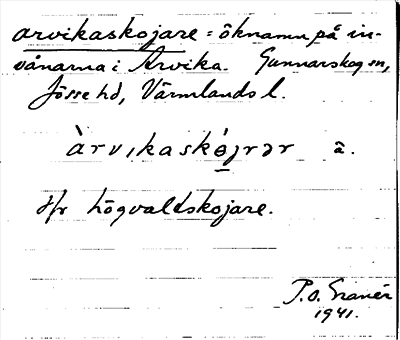 arvikaskojare = öknamn på in-
vånarna i Arvika. Gunnarskog sn,
Jösse hd, Värmlands l.
àrvıkaskó̱jrər ä.
Jfr högvaldskojare.
P.O. Granér
1941.